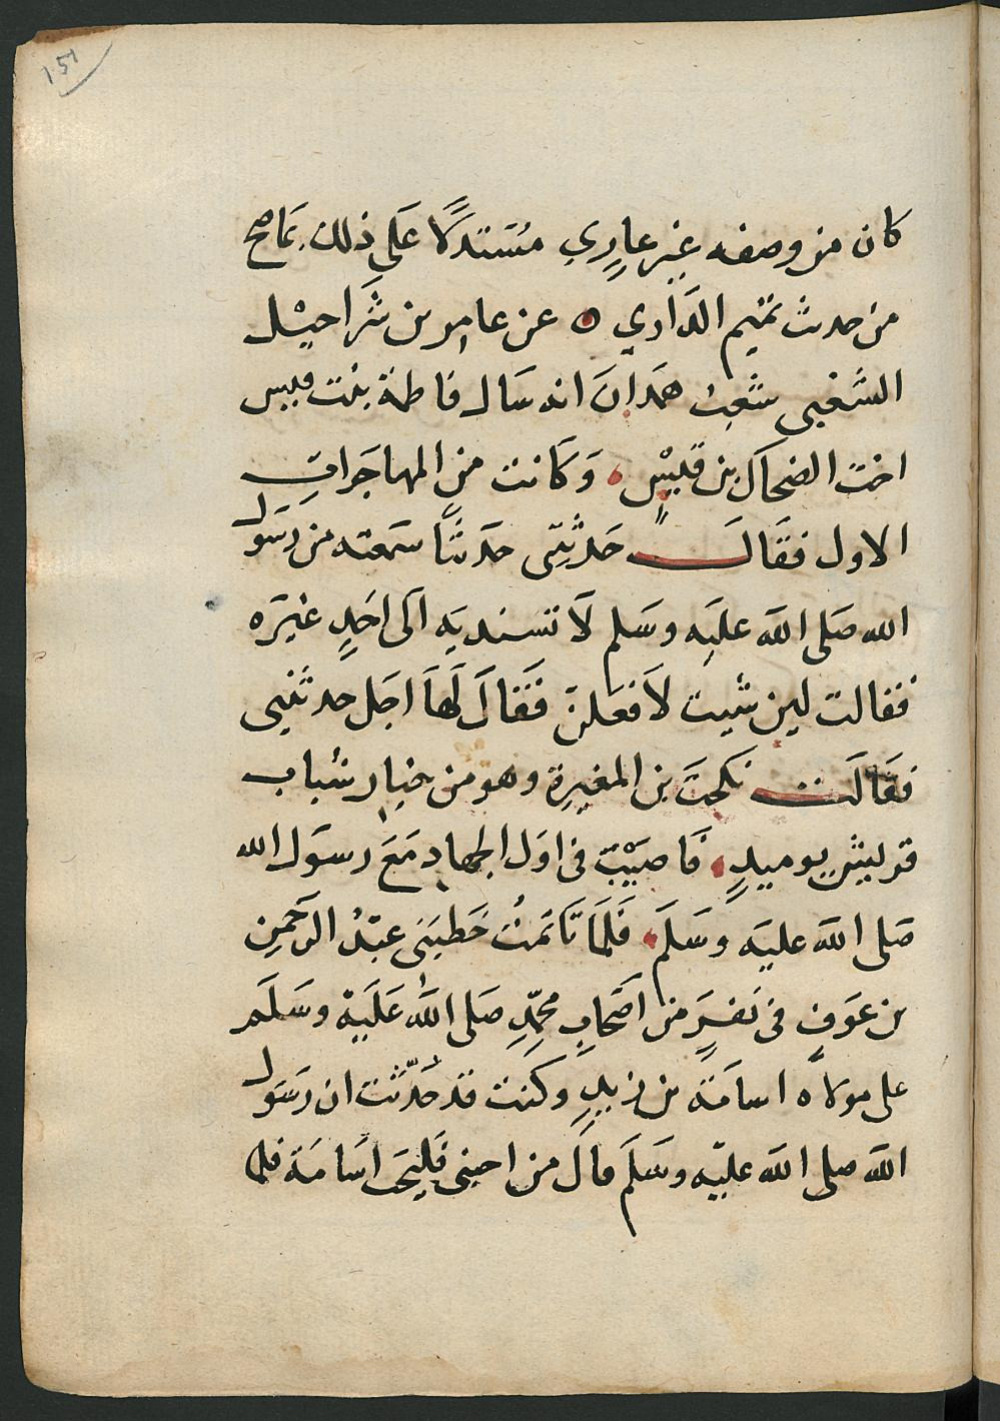 151
كان من وصفه غير عاري مستدركًا على ذلك بما صح
من حديث تميم الدَاري ه عن عامر بن شَراحيْل
الشَعبي شعبُ همدانَ انه سَال فاطمة بنت قيس
اخت الضحاك بن قيْسٍ وَكَانت من المهاجَراتِ
الاول فقَالَ حَدثيني حَديثًا سَمعته من رسَول
الله صَلى الله عليَه وسَلم لَا تسنديه الَى احَدٍ غيَره
فقالت لين شيت لَافعَلنّ فَقَالَ لَهَا اجَل حدثيني
فقَالَت نكحتَ بن المغيرة وهو من خيار شباب
قريش يوميذٍ فَاصيْبَ في اوَل الجهاد مَعَ رسوَل الله
صَلى الله عليَه وَسَلَم فَلَمَا تَايَمتُ خَطبَني عبْدُ الرَحمنِ
بن عوَفٍ في نَفرٍ من اصَحابِ محمّدٍ صَلى الله عَليَهْ وسَلَم
على مولاه اسامَة بن زيدٍ وكنت قد حُدّثت ان رسَول
الله صلى الله عليَه وسَلَم قالَ من احبني فَليحَب اسَامَة فلما